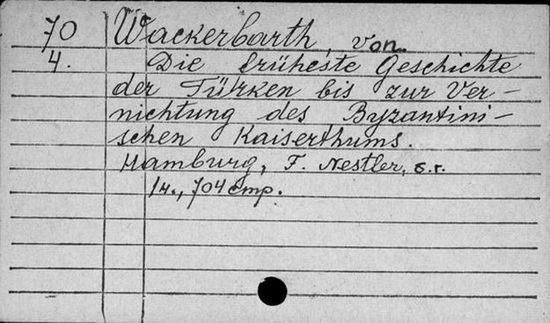 70 Wackerbarth, von.
4. Die früheste Geschichte
der Türken bis zur Ver-
nichtung des Byzantini-
schen Kaiserthums.
Hamburg, F. Nestler, s.r.
1 н., 704 стр.